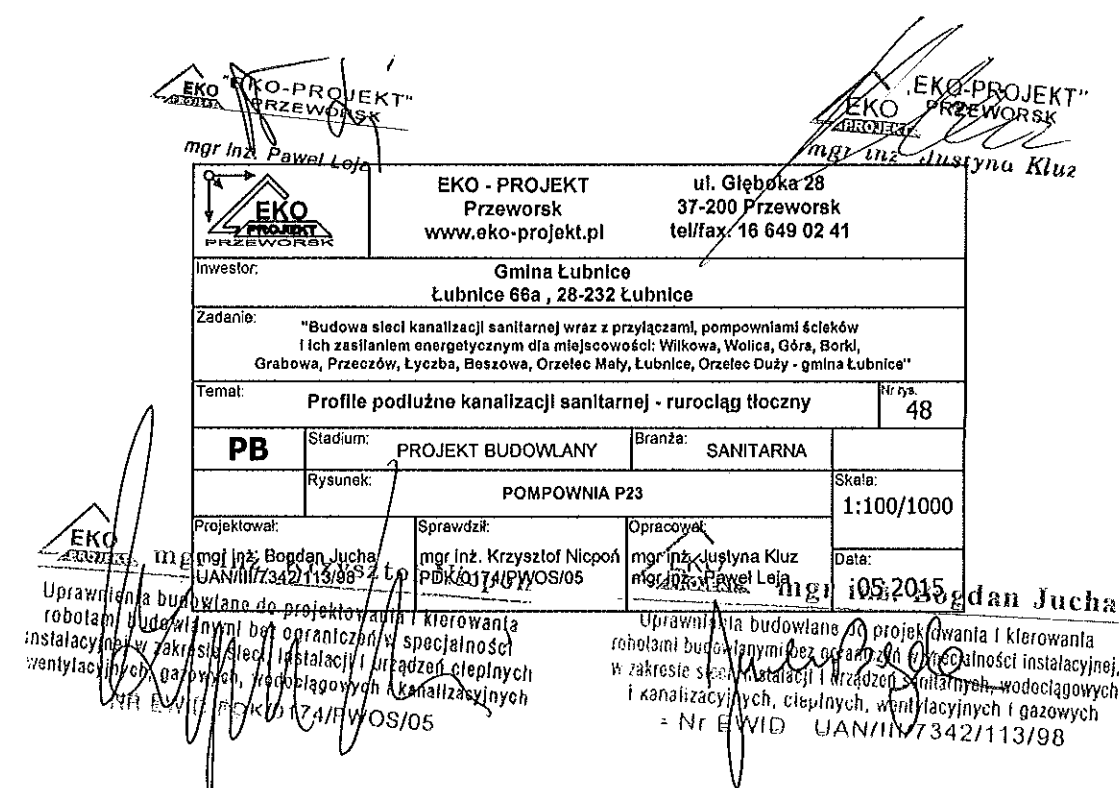 EKO "EKO-PROJEKT"
PROJEKT PRZEWORSK
mgr inż. Paweł Leja
EKO „EKO-PROJEKT"
PROJEKT PRZEWORSK
mgr inż. Justyna Kluz
EKO
PROJEKT
PRZEWORSK
EKO - PROJEKT
Przeworsk
www.eko-projekt.pl
ul. Głęboka 28
37-200 Przeworsk
tel/fax: 16 649 02 41
Inwestor:
Gmina Łubnice
Łubnice 66a , 28-232 Łubnice
Zadanie:
"Budowa sieci kanalizacji sanitarnej wraz z przyłączami, pompowniami ścieków
i ich zasilaniem energetycznym dla miejscowości: Wilkowa, Wolica, Góra, Borki,
Grabowa, Przeczów, Łyczba, Beszowa, Orzelec Mały, Łubnice, Orzelec Duży - gmina Łubnice"
Temat:
Profile podłużne kanalizacji sanitarnej - rurociąg tłoczny
Nr rys.
48
PB
Stadium:
PROJEKT BUDOWLANY
Branża:
SANITARNA
Rysunek:
POMPOWNIA P23
Skala:
1:100/1000
Projektował:
mgr inż. Bogdan Jucha
UAN/III/7342/113/98
Sprawdził:
mgr inż. Krzysztof Nicpoń
PDK/0174/PWOS/05
Opracował:
mgr inż. Justyna Kluz
mgr inż. Paweł Leja
Data:
05.2015
EKO
PROJEKT mgr inż. Krzysztof Nicpoń
Uprawnienia budowlane do projektowania i kierowania
robotami budowlanymi bez ograniczeń w specjalności
instalacyjnej w zakresie sieci, instalacji i urządzeń cieplnych
wentylacyjnych, gazowych, wodociągowych i kanalizacyjnych
NR EWID PDK/0174/PWOS/05
EKO
PROJEKT mgr inż. Bogdan Jucha
Uprawnienia budowlane do projektowania i kierowania
robotami budowlanymi bez ograniczeń w specjalności instalacyjnej,
w zakresie sieci, instalacji i urządzeń sanitarnych, wodociągowych
i kanalizacyjnych, cieplnych, wentylacyjnych i gazowych
- Nr EWID UAN/III/7342/113/98